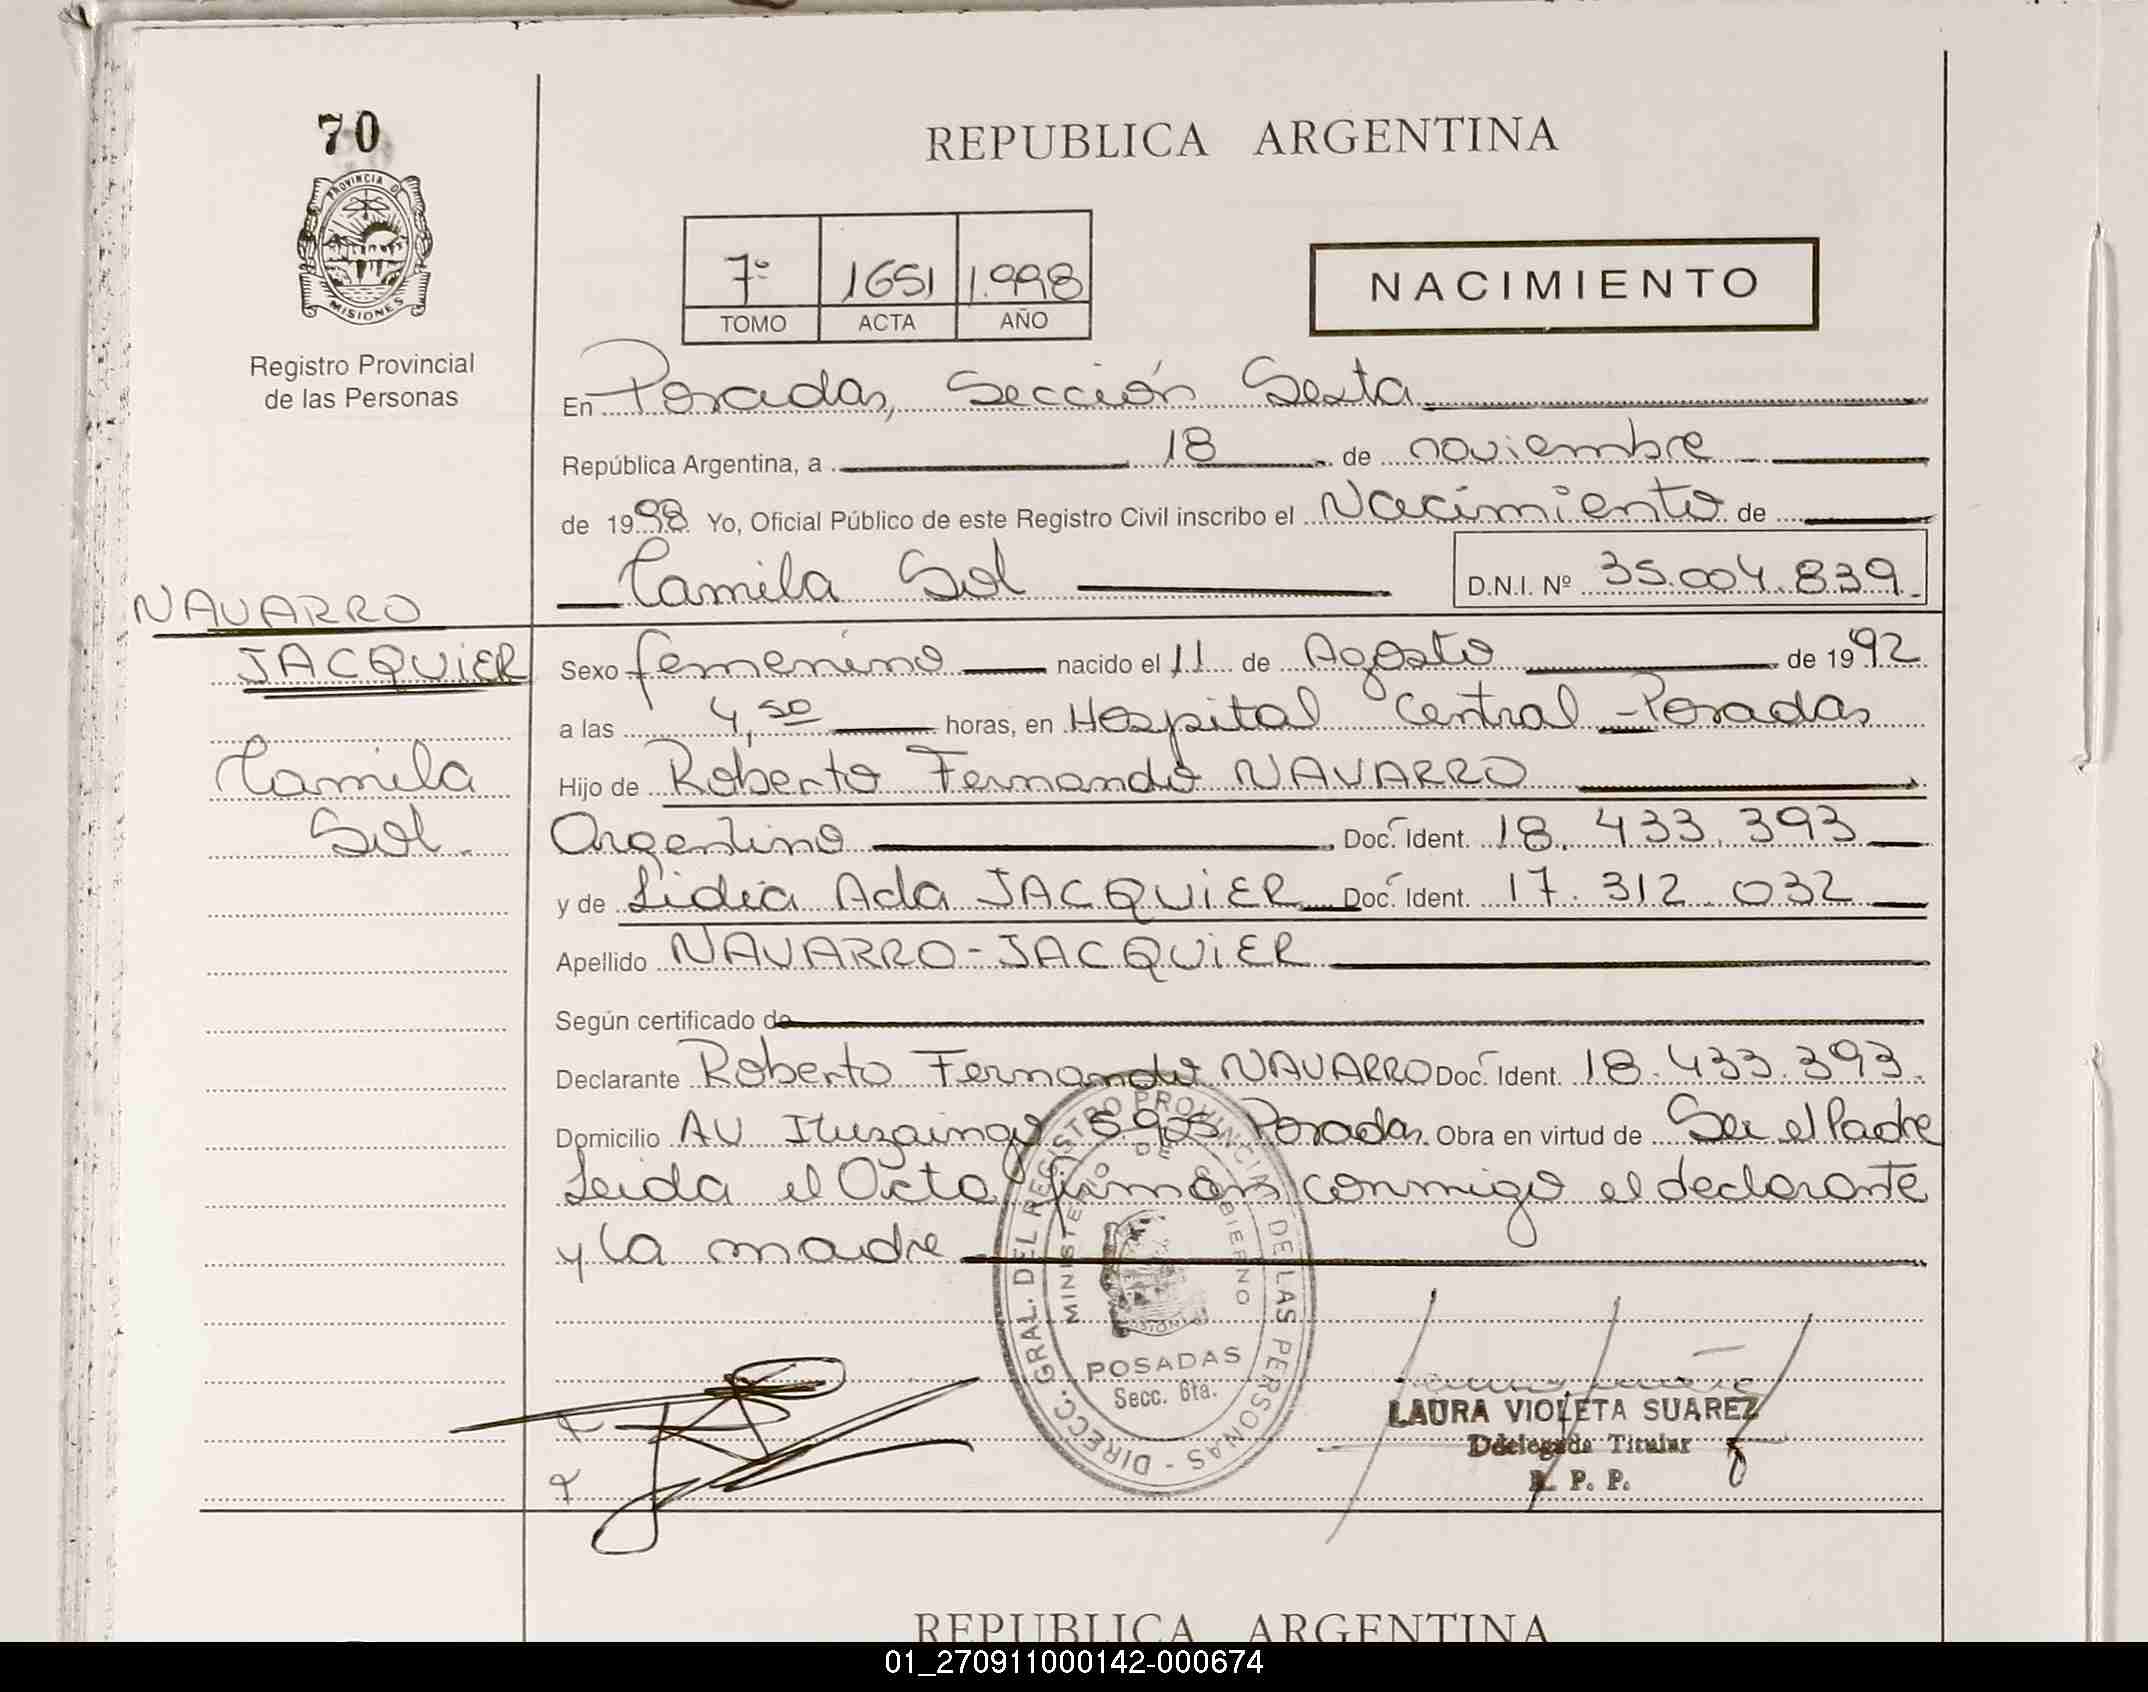 70
PROVINCIA D
MISIONES
Registro Provincial
de las Personas
REPUBLICA ARGENTINA
7º 1651 1.998
TOMO ACTA AÑO
NACIMIENTO
En Posadas, Sección Sexta
República Argentina, a 18 de noviembre
de 1998. Yo, Oficial Público de este Registro Civil inscribo el Nacimiento de
Camila Sol D.N.I. Nº 35.004.839
NAVARRO
JACQUIER
Camila
Sol.
Sexo femenino nacido el 11 de Agosto de 1992
a las 4,50 horas, en Hospital Central - Posadas
Hijo de Roberto Fernando NAVARRO
Argentino Doc. Ident. 18.433.393
y de Lidia Ada JACQUIER Doc. Ident. 17.312.032
Apellido NAVARRO-JACQUIER
Según certificado de
Declarante Roberto Fernando NAVARRO Doc. Ident. 18.433.393.
Domicilio AV Ituzaingo 5905 Posadas. Obra en virtud de Ser el Padre
Leida el Acta firman conmigo el declarante
y la madre
DIRECC. GRAL. DEL REGISTRO PROVINCIAL DE LAS PERSONAS -
MINISTERIO DE GOBIERNO
MISIONES
POSADAS
Secc. 6ta.
LAURA VIOLETA SUAREZ
Delegada Titular
R. P. P.
REPUBLICA ARGENTINA
01_270911000142-000674